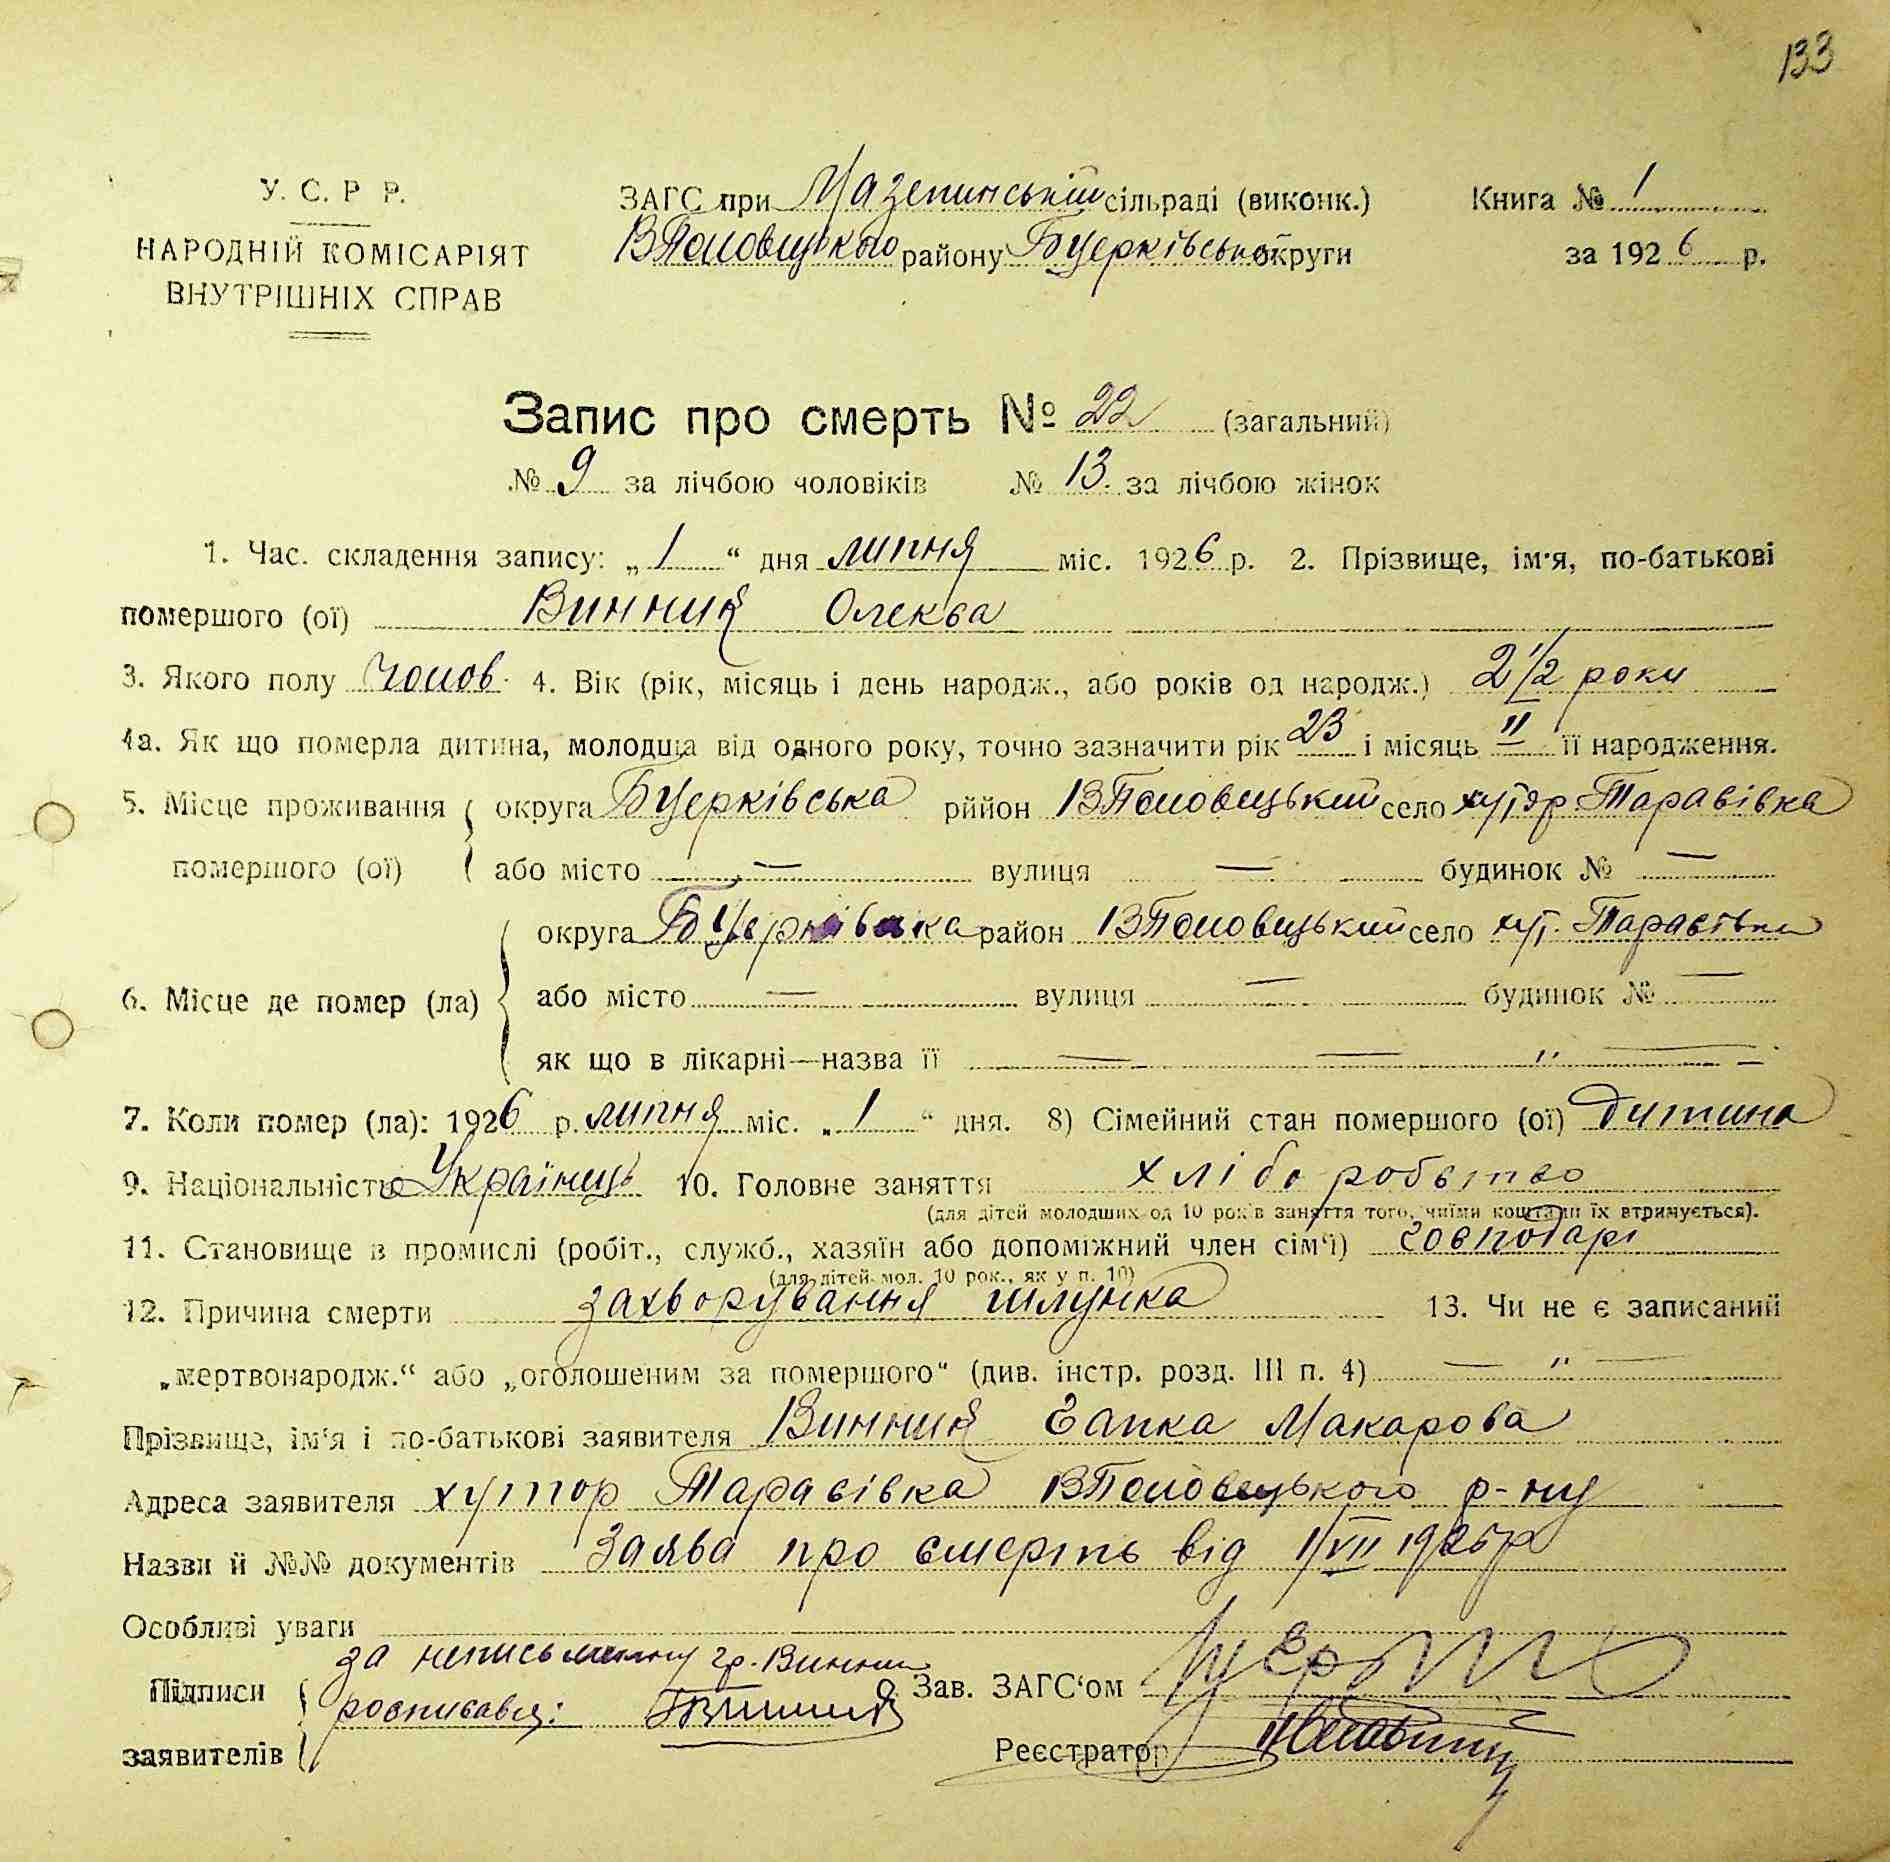 133
У. С. Р. Р.
НАРОДНІЙ КОМІСАРІЯТ
ВНУТРІШНІХ СПРАВ
ЗАГС при Мазепинській сільраді (виконк.)
ВПоловецького району Бцерківської округи
Книга № 1
за 1926 р.
Запис про смерть № 22 (загальний)
№ 9 за лічбою чоловіків № 13. за лічбою жінок
1. Час. складення запису: „1“ дня липня міс. 1926 р. 2. Прізвище, ім'я, по-батькові
помершого (ої) Винник Олекса
3. Якого полу чолов. 4. Вік (рік, місяць і день народж., або років од народж.) 2 1/2 роки
4а. Як що померла дитина, молодша від одного року, точно зазначити рік 23 і місяць II її народження.
5. Місце проживання округа Бцерківська рййон ВПоловецький село хутор Тарасівка
помершого (ої) або місто — вулиця — будинок № —
округа Бцерківська район ВПоловецький село хут. Тарасівка
6. Місце де помер (ла) або місто — вулиця — будинок № —
як що в лікарні—назва її — — " —
7. Коли помер (ла): 1926 р. липня міс. „1“ дня. 8) Сімейний стан помершого (ої) Дитина
9. Національність Українець 10. Головне заняття хліборобство
(для дітей молодших од 10 років заняття того, чиїми коштами їх втримується).
11. Становище в промислі (робіт., служб., хазяїн або допоміжний член сім'ї) господарі
(для дітей мол. 10 рок., як у п. 10)
12. Причина смерти захворування шлунка 13. Чи не є записаний
„мертвонародж.“ або „оголошеним за помершого“ (див. інстр. розд. III п. 4) — " —
Прізвище, ім'я і по-батькові заявителя Винник Гапка Макарова
Адреса заявителя хутор Тарасівка ВПоловецького р-ну
Назви й №№ документів Заява про смерть від 1/VII 1926 р
Особливі уваги
за неписьменну гр. Винник
Підписи росписавсь: Зав. ЗАГС'ом
заявителів Реєстратор